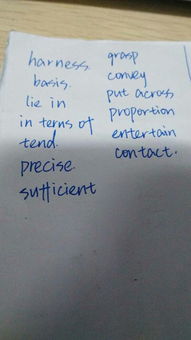 harness.
basis.
lie in
in terns of
tend.
precise.
sufficient
grasp
convey
put across
proportion
entertain
contact.